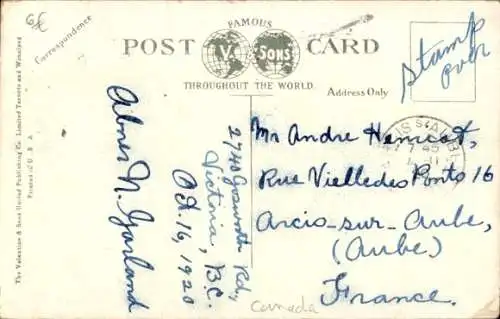 6£
Correspondence
FAMOUS
POST CARD
V. & SONS
THROUGHOUT THE WORLD.
Address Only
Stamp
over
The Valentine & Sons United Publishing Co. Limited Toronto and Winnipeg
Printed in U S A
Abner N. Garland
2740 Gosworth Rd.,
Victoria, B.C.
Oct. 16, 1920
Canada
Mr Andre
Rue Vielledes Ponts 16
Arcis-sur-Aube,
(Aube)
France.